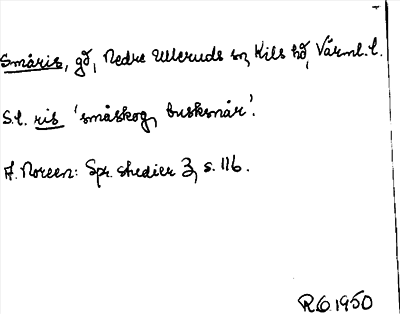 Småris, gd, Nedre Ulleruds sn, Kils hd, Värml. l.
S.l. ris 'småskog, busksnår'.
A. Noreen: Spr. studier 3, s. 116.
R.O. 1950